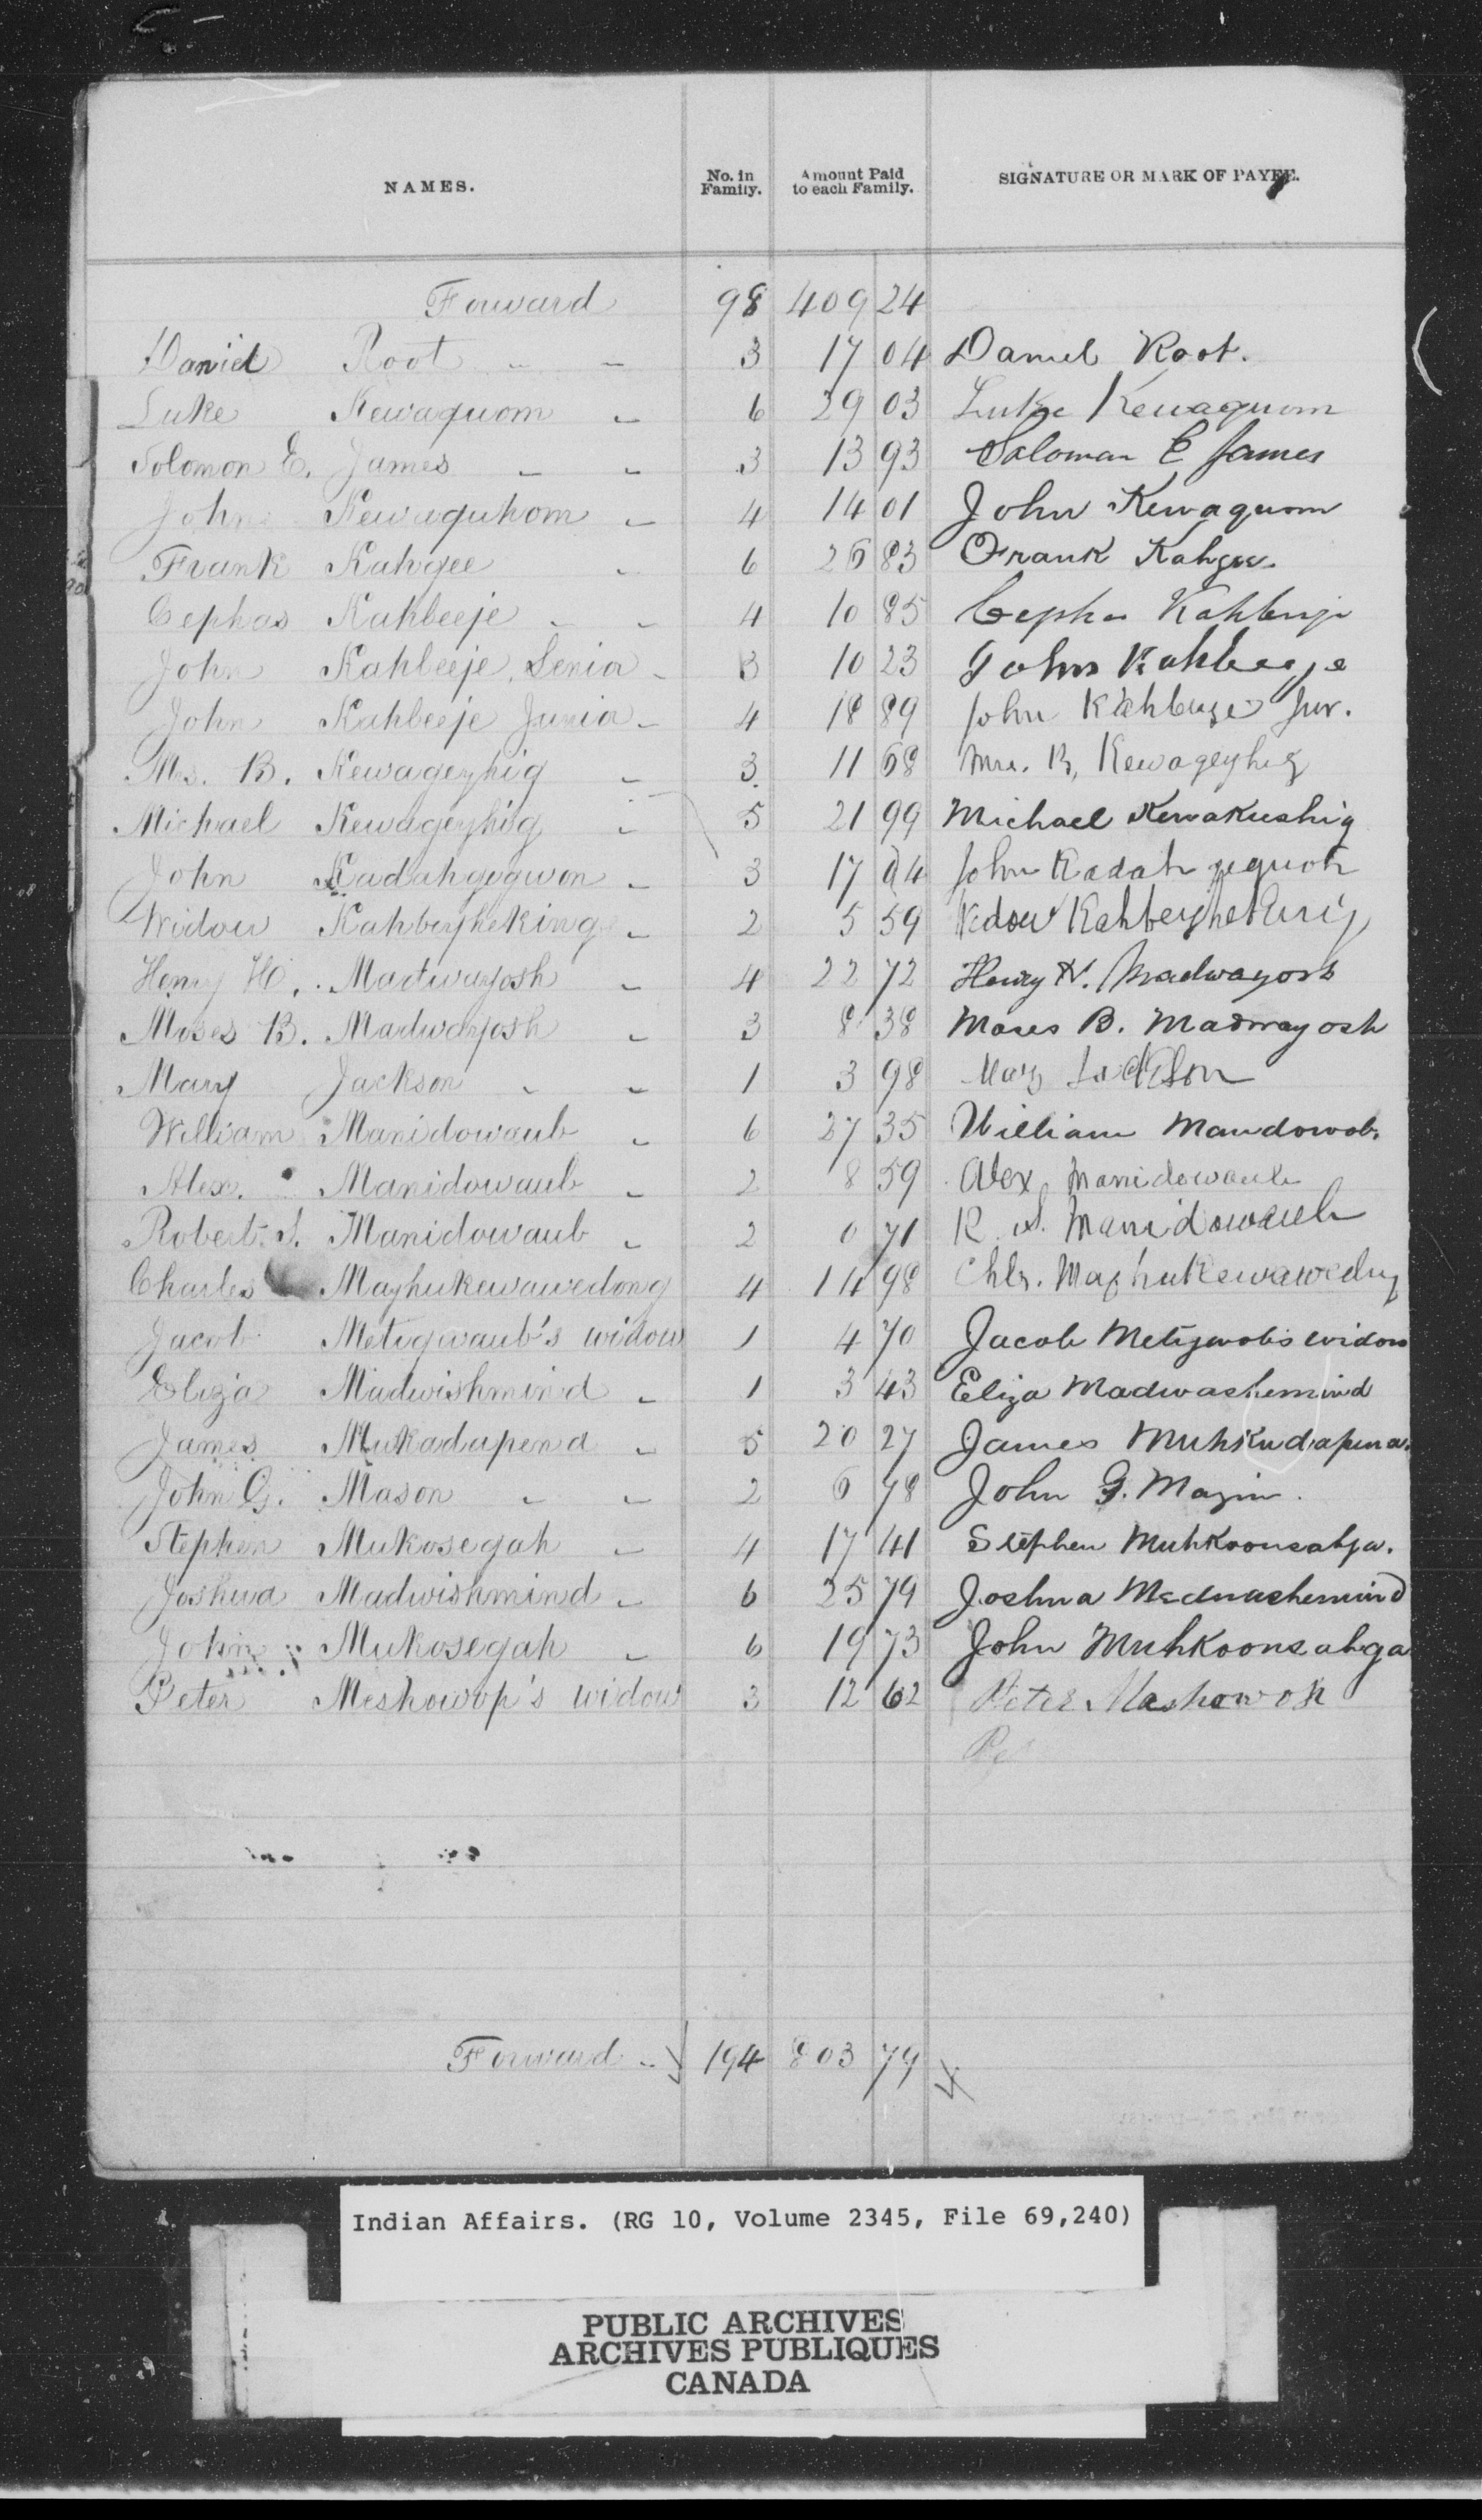 NAMES. No. in Family. Amount Paid to each Family. SIGNATURE OR MARK OF PAYEE.
Forward 98 409 24
Daniel Root " " 3 17 04 Daniel Root.
Luke Kewaquom " 6 29 03 Luke Kewaquom
Solomon E. James " " 3 13 93 Soloman E James
John Kewaquhom " 4 14 01 John Kewaquom
Frank Kahgee " 6 26 83 Frank Kahgee.
Cephas Kahbeeje " " 4 10 85 Cephas Kahbeeje
John Kahbeeje, Senior " 3 10 23 John Kahbeeje
John Kahbeeje Junior " 4 18 89 John Kahbeeje Jur.
Mrs. B. Kewageyhig " 3 11 68 Mrs. B, Kewageyhig
Michael Kewageyhig " 5 21 99 Michael Kewakushig
John Kadahgegwon " 3 17 04 John Kadah gequon
Widow Kahbeyheking " 2 5 59 Widow
Henry H. Madwayosh " 4 22 72 Henry H. Madwayosh
Moses B. Madwayosh " 3 8 38 Moses B. Madwayosh
Mary Jackson " " 1 3 98 Mary Jackson
William Manidowaub " 6 27 35 William Mandowob.
Alex. Manidowaub " 2 8 59 Alex Manidowaub
Robert S. Manidowaub " 2 0 71 R. S. Manidowaub
Charles Mayhukewawedong 4 14 98 Chls. Mayhukewawedng
Jacob Metigwaub's widow 1 4 70 Jacob Metigwob's widow
Eliza Madwishmind " 1 3 43 Eliza Madwashemind
James Mukadapena " 5 20 27 James Muhkudapena.
John G. Mason " " 2 6 78 John G. Mazin.
Stephen Mukosegah " 4 17 41 Stephen Muhkoonsahga.
Joshua Madwishmind " 6 25 79 Joshua Madwashemind
John Mukosegah " 6 19 73 John Muhkoonsahga
Peter Meshowop's widow 3 12 62 Peter Mashowop
Pe
Forward " 194 803 79
Indian Affairs. (RG 10, Volume 2345, File 69,240)
PUBLIC ARCHIVES
ARCHIVES PUBLIQUES
CANADA